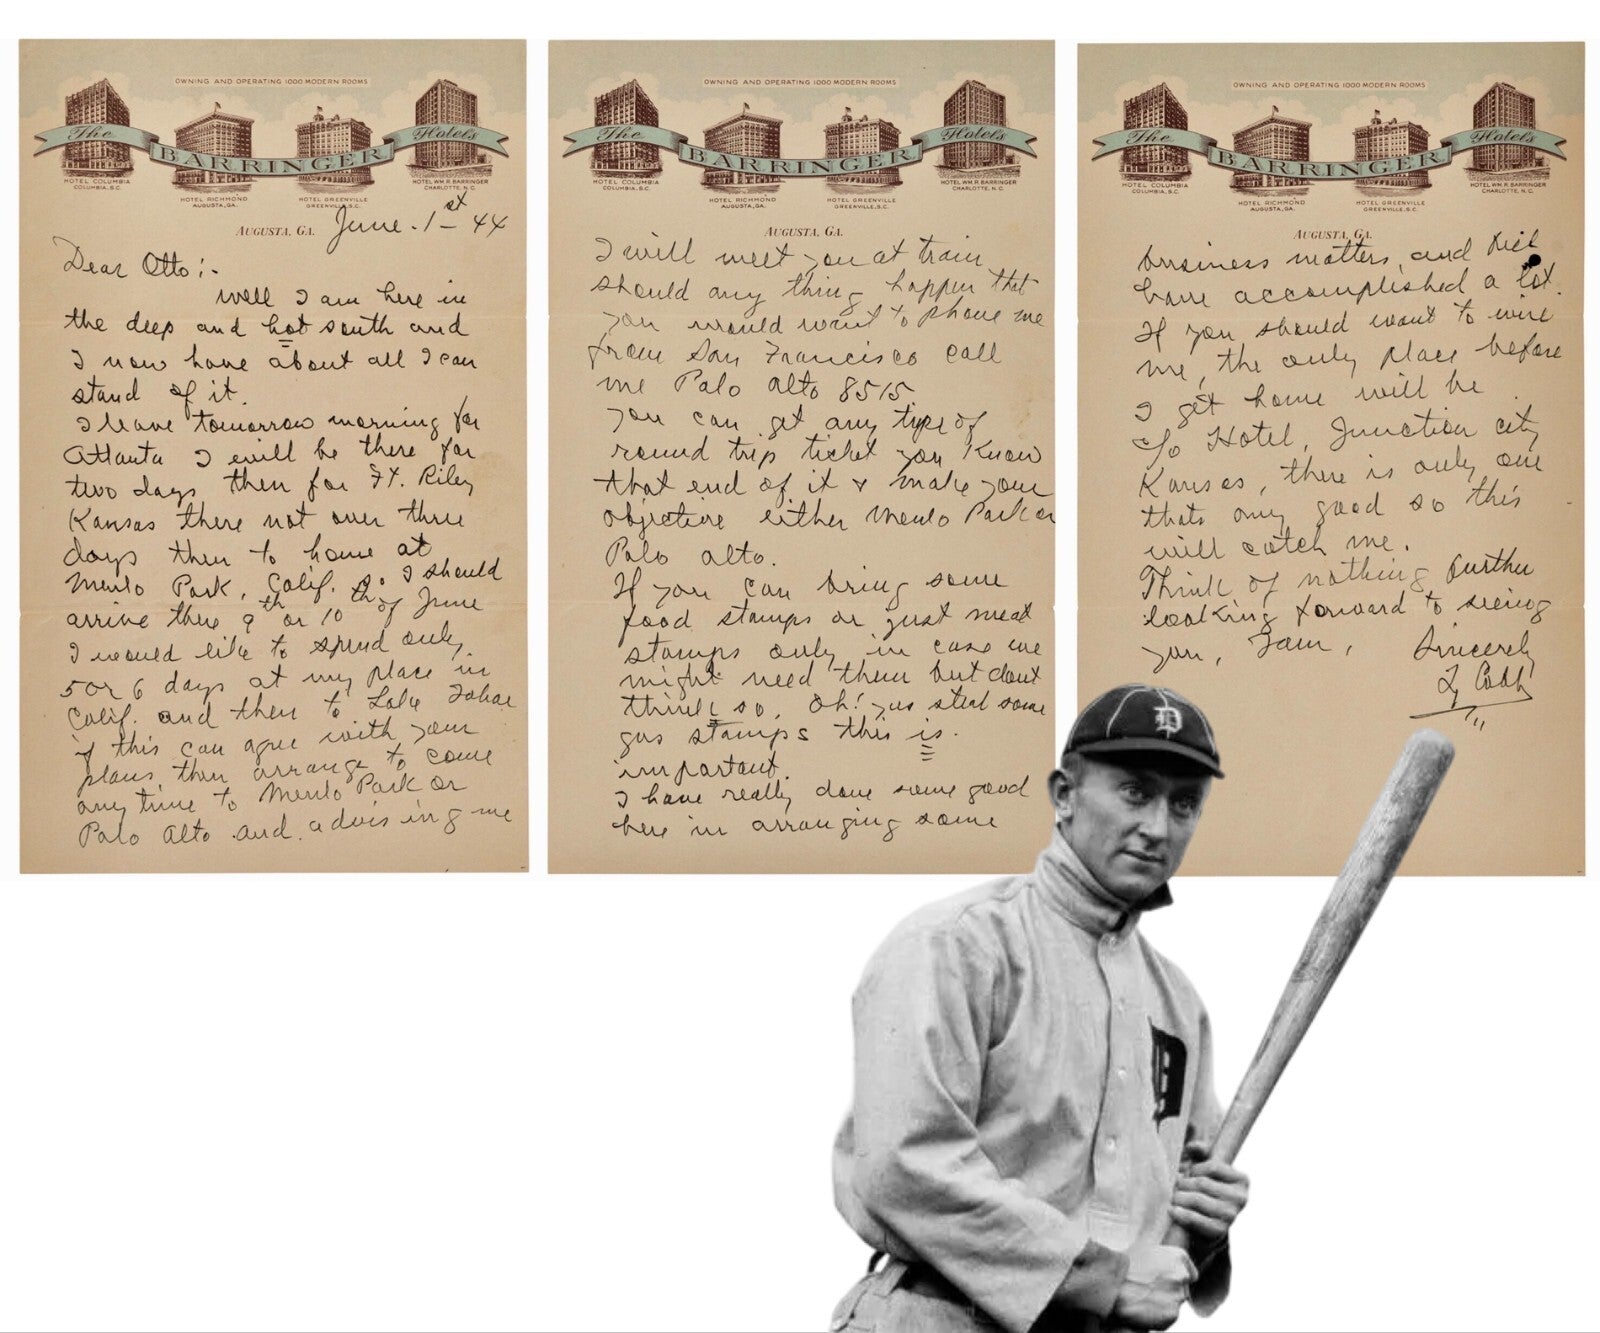 OWNING AND OPERATING 1000 MODERN ROOMS
The BARRINGER Hotels
HOTEL COLUMBIA
COLUMBIA, S.C.
HOTEL RICHMOND
AUGUSTA, GA.
HOTEL GREENVILLE
GREENVILLE, S.C.
HOTEL WM. R. BARRINGER
CHARLOTTE, N.C.
AUGUSTA, GA.
June. 1st 44
Dear Otto:-
well I am here in
the deep and hot south and
I now have about all I can
stand of it.
I leave tomorrow morning for
Atlanta I will be there for
two days then for Ft. Riley
Kansas there not over three
days then to home at
Menlo Park, Calif. so I should
arrive there 9th or 10th of June
I would like to spend only
5 or 6 days at my place in
Calif. and then to Lake Tahoe
if this can agree with your
plans then arrange to come
any time to Menlo Park or
Palo Alto and advising me
OWNING AND OPERATING 1000 MODERN ROOMS
The BARRINGER Hotels
HOTEL COLUMBIA
COLUMBIA, S.C.
HOTEL RICHMOND
AUGUSTA, GA.
HOTEL GREENVILLE
GREENVILLE, S.C.
HOTEL WM. R. BARRINGER
CHARLOTTE, N.C.
AUGUSTA, GA.
I will meet you at train
should any thing happen that
you would want to phone me
from San Francisco call
me Palo Alto 8515
you can get any type of
round trip ticket you know
that end of it & make your
objective either Menlo Park or
Palo alto.
If you can bring some
food stamps or just meat
stamps only in case we
might need them but dont
think so. Oh! yes steal some
gas stamps this is.
important.
I have really done some good
here in arranging some
OWNING AND OPERATING 1000 MODERN ROOMS
The BARRINGER Hotels
HOTEL COLUMBIA
COLUMBIA, S.C.
HOTEL RICHMOND
AUGUSTA, GA.
HOTEL GREENVILLE
GREENVILLE, S.C.
HOTEL WM. R. BARRINGER
CHARLOTTE, N.C.
AUGUSTA, GA.
business matters, and
have accomplished a lot.
If you should want to wire
me, the only place before
I get home will be
c/o Hotel, Junction city
Kansas, there is only one
thats any good so this
will catch me.
Think of nothing further
looking forward to seeing
you, I am, Sincerely
Ty Cobb
D
D